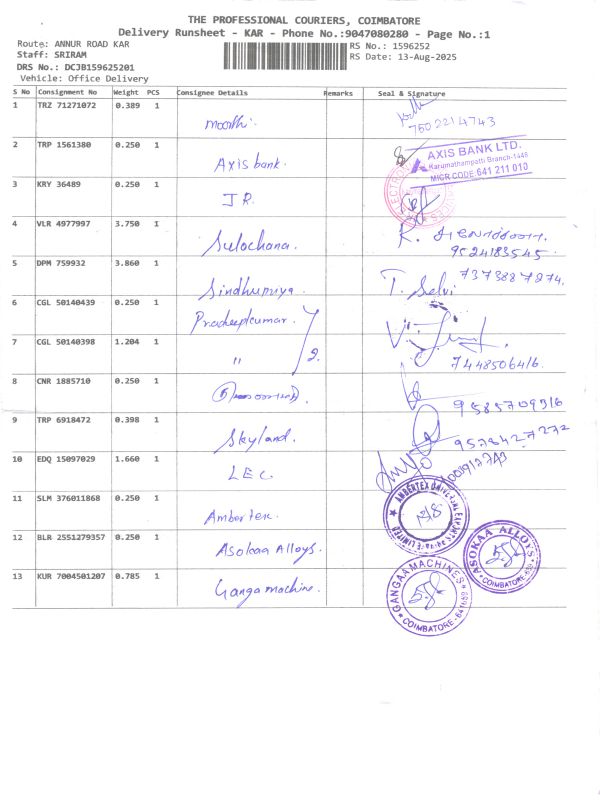 THE PROFESSIONAL COURIERS, COIMBATORE
Delivery Runsheet - KAR - Phone No.:9047080280 - Page No.:1
Route: ANNUR ROAD KAR
RS No.: 1596252
Staff: SRIRAM
RS Date: 13-Aug-2025
DRS No.: DCJB159625201
Vehicle: Office Delivery
S No Consignment No Weight PCS Consignee Details Remarks Seal & Signature
1 TRZ 71271072 0.389 1
moorthi. 7502214743
2 TRP 1561380 0.250 1
Axis bank.
AXIS BANK LTD.
Karumathampatti Branch-1446
MICR CODE:641 211 010
3 KRY 36489 0.250 1
J R.
4 VLR 4977997 3.750 1
Sulochana.
9524183545
5 DPM 759932 3.860 1
Sindhupriya. T. Selvi 7373887274.
6 CGL 50140439 0.250 1
Pradeepkumar.
7 CGL 50140398 1.204 1
" 2. 7448506416.
8 CNR 1885710 0.250 1
9585709316
9 TRP 6918472 0.398 1
Skyland. 9578427272
10 EDQ 15097029 1.660 1
LEC.
11 SLM 376011868 0.250 1
Ambertex.
12 BLR 2551279357 0.250 1
Asokaa Alloys.
ASOKAA ALLOYS
COIMBATORE
13 KUR 7004501207 0.785 1
Ganga machine.
GANGAA MACHINES
COIMBATORE - 641659